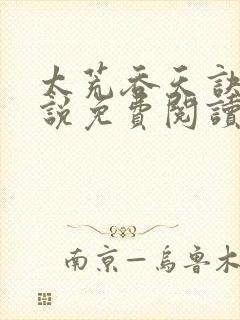 太荒吞天訣
說免費閱讀
南京—烏魯木